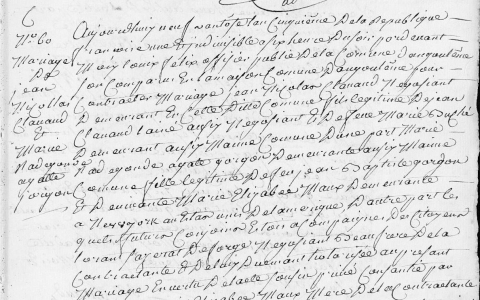 6
No 60
Mariage
De
jean
Nicollas
Clauaud
Et
Marie
Radegonde
agatte
gorgon
Aujourdhuy neuf vantose lan cinquième De la Republique
francoise une Et indivisible a six heures Du soir pardevant
Moy Louis felix officier public De la Comune Dangouleme
son Comparus En la maison Comune Dangouleme pour
Contracter Mariage jean Nicolas Clauaud Negossiant
Demeurant En Cette Ditte Comune fils legitime De jean
Clauaud laine aussy Negossiant & De feue Marie
Demeurant aussy Maime Comune Dune part Marie
Radegonde agate gorgon Demeurante aussy Maime
Comune fille legitime De feu jean Baptiste gorgon
Et De vivante Marie Elizabet Maux Demeurante
a Newyork aux Etat unis De lamerique Dautre part les
quels futurs Conjoins Etoit acompaignes Des Citoyens
lorant Desforge Negossiant Beaufrere De la
Contractante & De luy Duemant hatorisée au present
Mariage En vertu De lacte
Elizabet Maux Mere De la Contractante